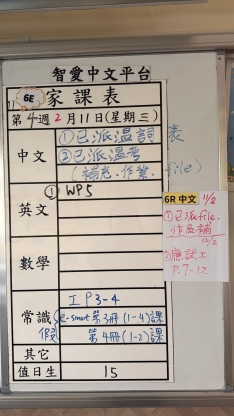 智愛中文平台
6E 家課表
第4週2月11日(星期三)
中文 ①已派溫詞表
②已派溫考
(補充、作業、file)
英文 ① WP5
數學
常識 工 P3-4
假 e-smart 第3冊(1-4)課
第4冊(1-2)課
其它
值日生 15
6R 中文 11/2
①已派file、
作品補
12/2
應試工
P.7-12